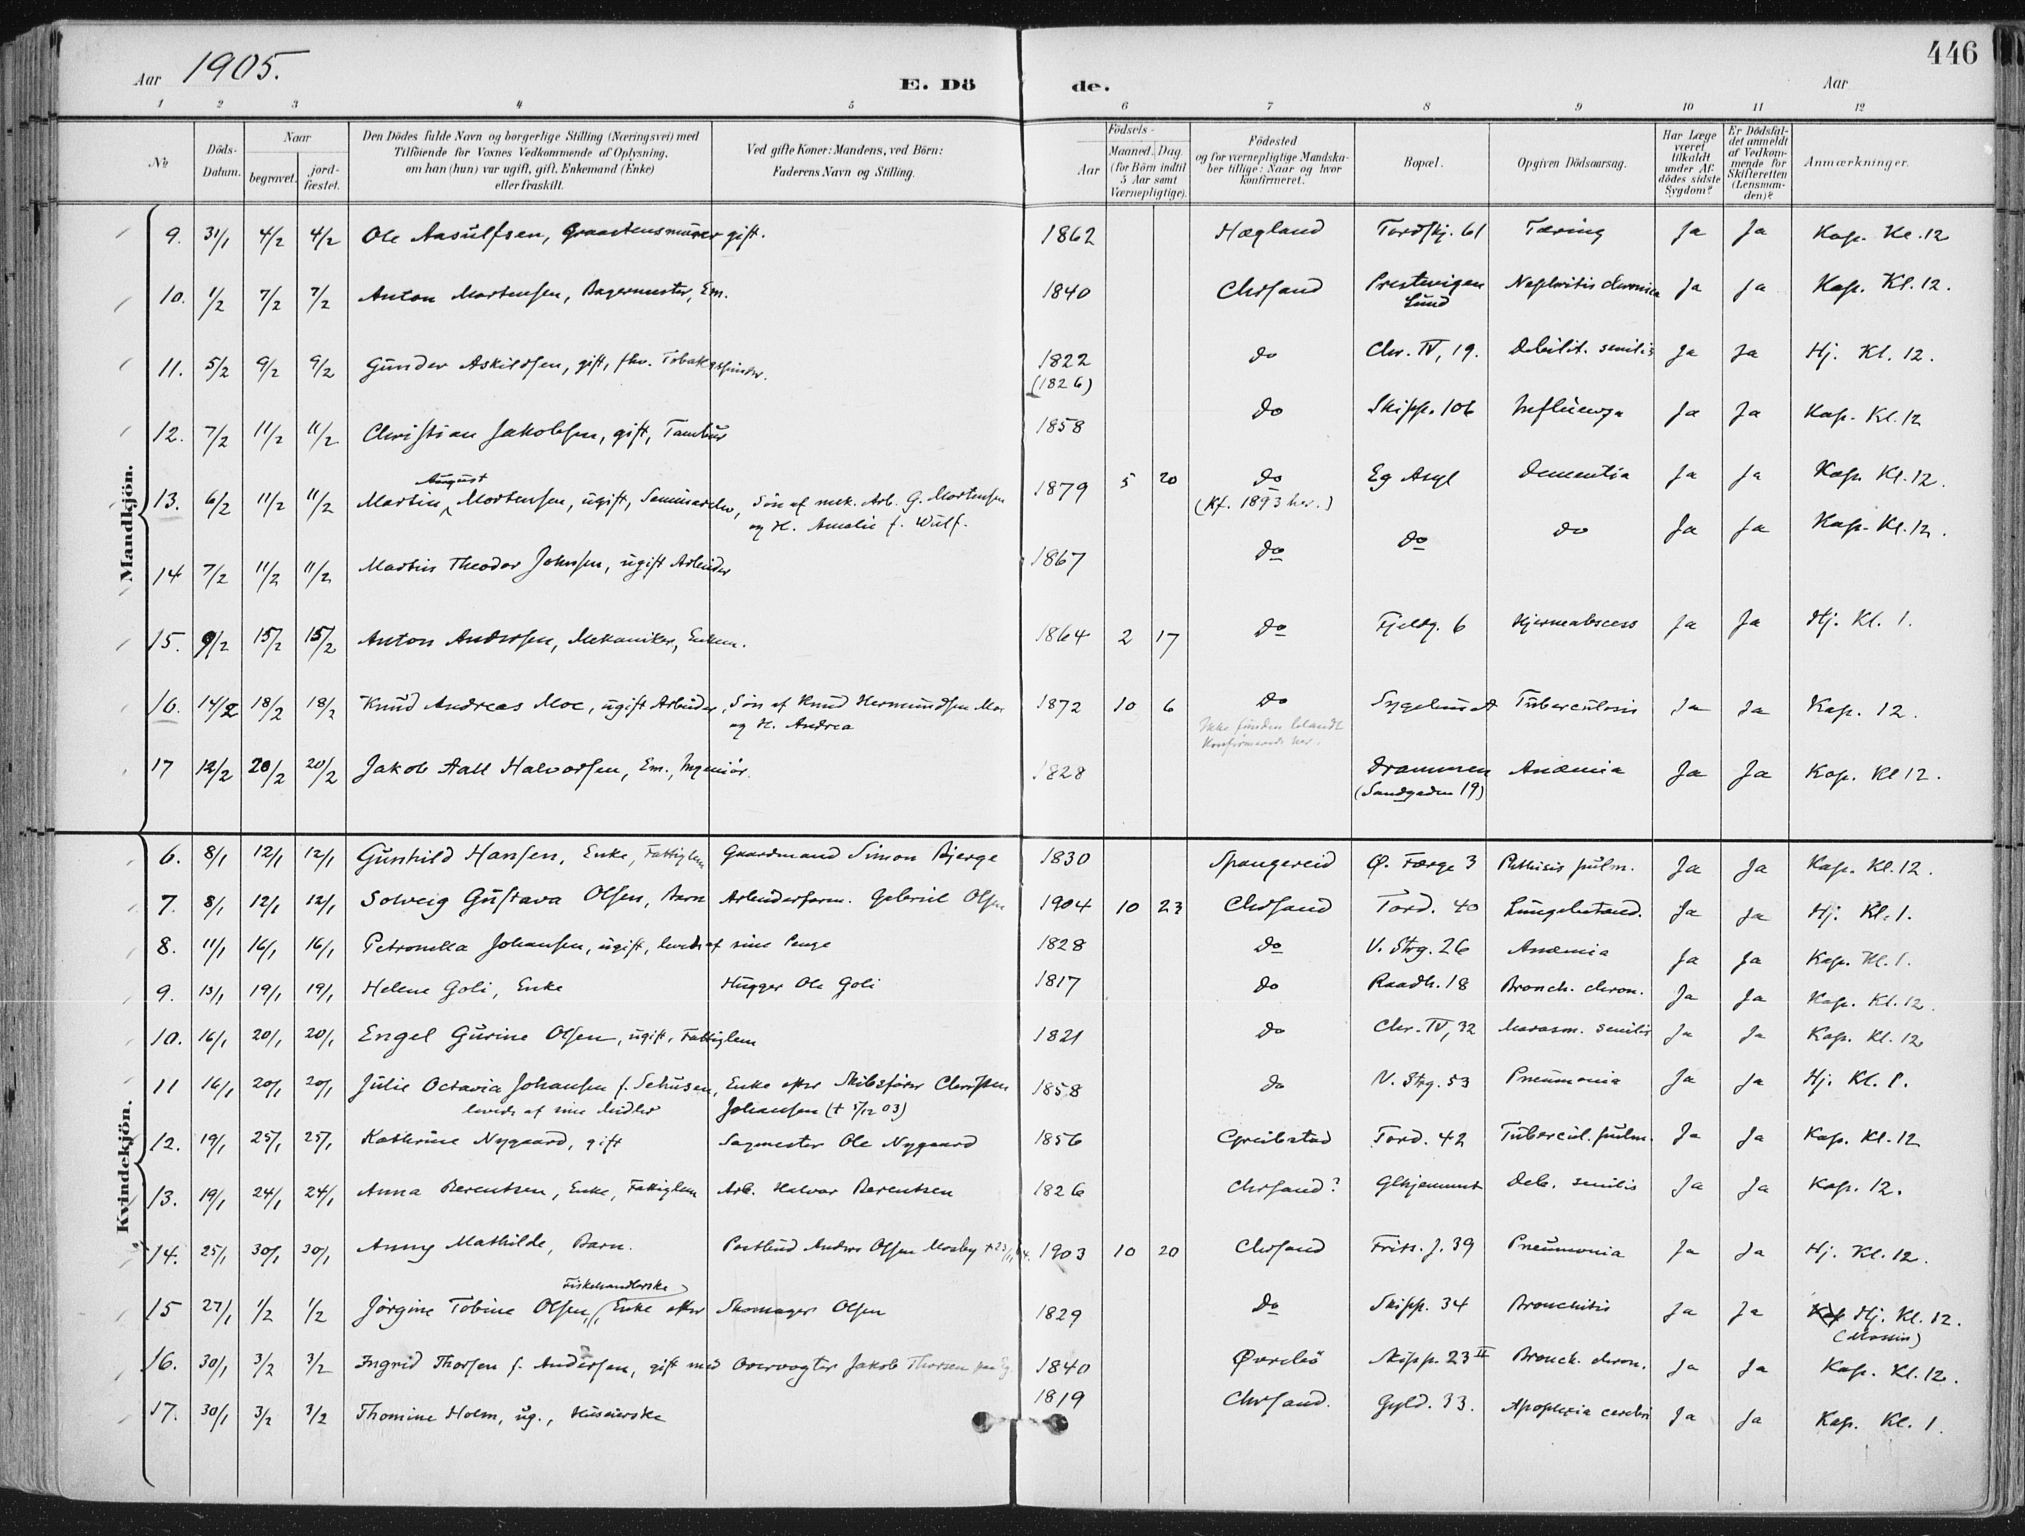 446
Aar 1905. E. Dö de. Aar
1 2 3 4 5 6 7 8 9 10 11 12
No
Döds-Datum.
Naar
begravet. jord-fæstet.
Den Dödes fulde Navn og borgerlige Stilling (Næringsvei) med
Tilföiende for Voxnes Vedkommende af Oplysning,
om han (hun) var ugift, gift, Enkemand (Enke)
eller fraskilt.
Ved gifte Koner: Mandens, ved Börn:
Faderens Navn og Stilling.
Födsels-
Aar Maaned. Dag.
(for Börn indtil
5 Aar samt
Værnepligtige).
Födested
og for værnepligtige Mandska-
ber tillige: Naar og hvor
konfirmeret.
Bopæl.
Opgiven Dödsaarsag.
Har Læge
været
tilkaldt
under Af-
dödes sidste
Sygdom?
Er Dödsfal-
det anmeldt
af Vedkom-
mende for
Skifteretten
(Lensman-
den)?
Anmærkninger.
Mandkjön.
9. 31/1 4/2 4/2 Ole Aasulfsen, Graastensmurer gift. 1862 Hægland Tordskj. 61 Tæring Ja Ja Kap. Kl. 12
10. 1/2 7/2 7/2 Anton Mortensen, Bagermester, Em. 1840 Chrsand Prestvigen Nephritis chronica Ja Ja Kap. Kl. 12.
Lund
11. 5/2 9/2 9/2 Gunder Askildsen, gift, fhv. Tobakspinder. 1822 do Chr. IV, 19. Debilit. senilis Ja Ja Hj. Kl. 12.
(1826)
12. 7/2 11/2 11/2 Christian Jakobsen, gift, Tambur 1858 do Skipp. 106 Influenza Ja Ja Kap. Kl. 12
August
13. 6/2 11/2 11/2 Martin Mortensen, ugift, Seminarelev, Sön af mek. Arb. G. Mortensen 1879 5 20 do Eg Asyl Dementia Ja Ja Kap. Kl. 12.
og H. Amalie f. Wulf. (Kf. 1893 her.)
14 7/2 11/2 11/2 Martin Theodor Johnsen, ugift Arbeider 1867 do do do Ja Ja Kap. Kl. 12.
15. 9/2 15/2 15/2 Anton Andersen, Mekaniker, Enkem. 1864 2 17 do Fjeldg. 6 Hjerneabscess Ja Ja Hj. Kl. 1.
16. 14/2 18/2 18/2 Knud Andreas Moe, ugift Arbeider, Sön af Knud Hermundsen Moe 1872 10 6 do Tuberculosis Ja Ja Kap. 12.
og H. Andrea Ikke funden blandt
Konfirmerede her.
17 12/2 20/2 20/2 Jakob Aall Halvorsen, Em., Ingeniör. 1828 Drammen Anæmia Ja Ja Kap. Kl 12.
(Sandgaden 19)
Kvindekjön.
6. 8/1 12/1 12/1 Gunhild Hansen, Enke, Fattiglem Gaardmand Simon Bjerge 1830 Spangereid Ø. Færge 3 Pthisis pulm. Ja Ja Kap. Kl. 12.
7. 8/1 12/1 12/1 Solveig Gustava Olsen, Barn Arbeiderform. Gabriel Olsen 1904 10 23 Chrsand Tord. 40 Lungebetænd. Ja Ja Hj. Kl. 1.
8. 11/1 16/1 16/1 Petronella Johansen, ugift, leved af sine Penge 1828 do V. Strg. 26 Anæmia Ja Ja Kap. Kl. 1.
9. 13/1 19/1 19/1 Helene Goli, Enke Hugger Ole Goli 1817 do Raadh. 18 Bronch. chron. Ja Ja Kap. Kl. 12.
10. 16/1 20/1 20/1 Engel Gurine Olsen, ugift, Fattiglem 1821 do Chr. IV, 32 Marasm. senilis Ja Ja Kap. Kl. 12
11 16/1 20/1 20/1 Julie Octavia Johansen f. Schusen, Enke efter Skibsförer Christen 1858 do V. Strg. 53 Pneumonia Ja Ja Hj. Kl. 1.
leved af sine Midler Johansen († 5/12 03)
12. 19/1 25/1 25/1 Kathrine Nygaard, gift Sagmester Ole Nygaard 1856 Greibstad Tord. 42 Tubercul. pulm. Ja Ja Kap. Kl. 12
13. 19/1 24/1 24/1 Anna Berentsen, Enke, Fattiglem Arb. Halvor Berentsen 1826 Chrsand? Glhjemmet Deb. senilis Ja Ja Kap. 12.
14. 25/1 30/1 30/1 Anny Mathilde, Barn. Postbud Anders Olsen Mosby 1903 10 20 Chrsand Frits. J. 39 Pneumonia Ja Ja Hj. Kl. 12.
Fiskehandlerske
15 27/1 1/2 1/2 Jörgine Tobine Olsen, Enke efter Skomager Olsen 1829 do Skipp. 34 Bronchitis Ja Ja Kap Hj. Kl. 12.
16. 30/1 3/2 3/2 Ingrid Thorsen f. Andersen, gift med Overvogter Jakob Thorsen 1840 Øvrebö Skipp. 23 II Bronch. chron. Ja Ja Kap. Kl. 12.
17. 30/1 3/2 3/2 Thomine Holm, ug., Husierske 1819 Chrsand. Gyld. 33. Apoplexia cerebri Ja Ja Kap. Kl. 1.